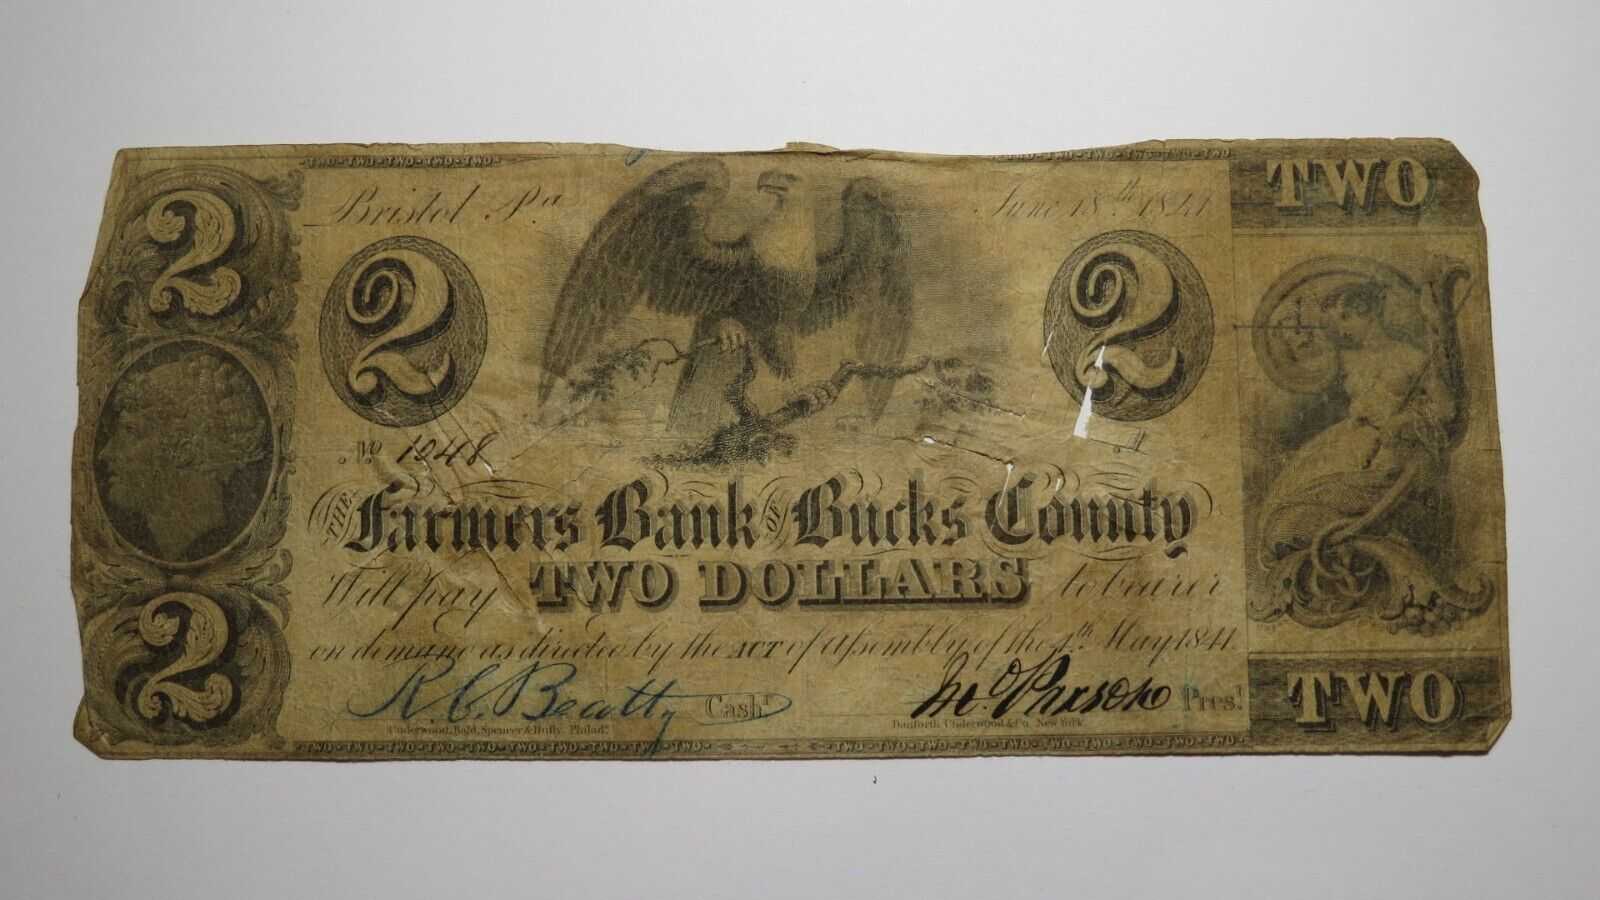 TWO-TWO-TWO-TWO-TWO
TWO-TWO-TWO-TWO-TWO
2
TWO
Bristol Pa
June 18th 1841
2
2
No 1048
THE Farmers Bank OF Bucks County
Will pay TWO DOLLARS to bearer
on demand as directed by the ACT of Assembly of the 4th May 1841.
2
R. C. Beatty Cashr
Jno. Parson Prest
TWO
Underwood, Bald, Spencer & Hufty. Philada.
Danforth, Underwood & Co. New York.
TWO-TWO-TWO-TWO-TWO-TWO-TWO-TWO-TWO-TWO
TWO-TWO-TWO-TWO-TWO-TWO-TWO-TWO-TWO-TWO